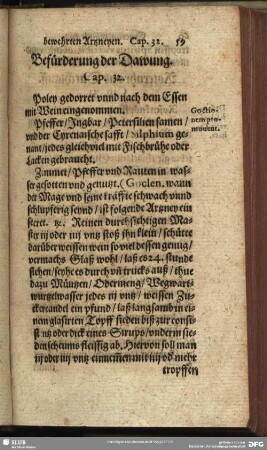 bewehrten Artzneyen. Cap. 32. 59
Befürderung der Dawung.
Cap. 32.
Poley gedorret vnnd nach dem Essen
mit Wein eingenommen.
Pfeffer/ Ingbar/ Petersilien samen/
vnd der Cyrenaische safft/ Silphium ge-
nant/ jedes gleichviel mit Fischbrühe oder
Lacken gebraucht.
Zimmet/ Pfeffer vnd Rauten in was-
ser gesotten vnd genutzt. (Goclen. wann
der Mage vnd seine kräffte schwach vnnd
schlupferig seynd/ ist folgende Artzney ein
Reinen durchsichtigen Ma-
stix iij oder iiij vntz stoß ihn klein/ schütte
darüber weissen wein so viel dessen genug/
vermachs Glaß wohl/ laß es 24. stunde
stehen/ seyhe es durch vñ trucks auß/ thue
dazu Müntzen/ Odermeng/ Wegwart-
wurtzelwasser jedes iij vntz/ weissen Zu-
ckercandel ein pfund/ laß langsamb in ei-
nem glasirten Topff sieden biß zur consi-
st ntz oder dick eines Sirups/ vnder im sie-
den scheums fleissig ab. Hiervon soll man
ij oder iij vntz einnemen mit iiij od mehr
tropffen
Goclenii